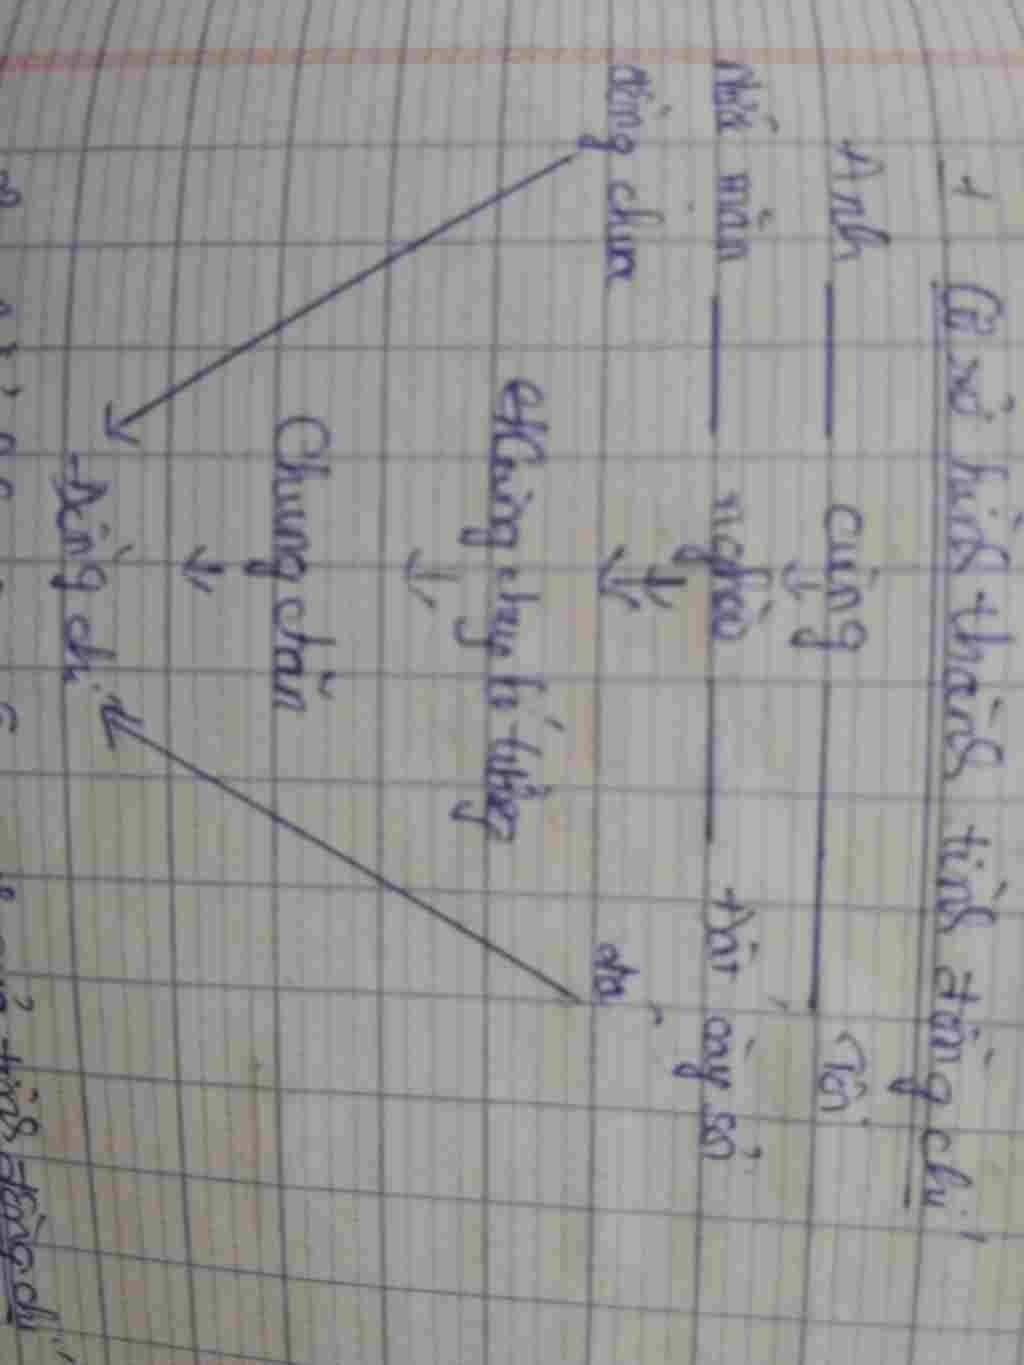 1 Cơ sở hình thành tình đồng chí
Anh cùng Tôi
nước mặn nghèo Đất cày sỏi
đồng chua đá
Cùng chung lí tưởng
Chung chăn
Đồng chí
tình đồng chí